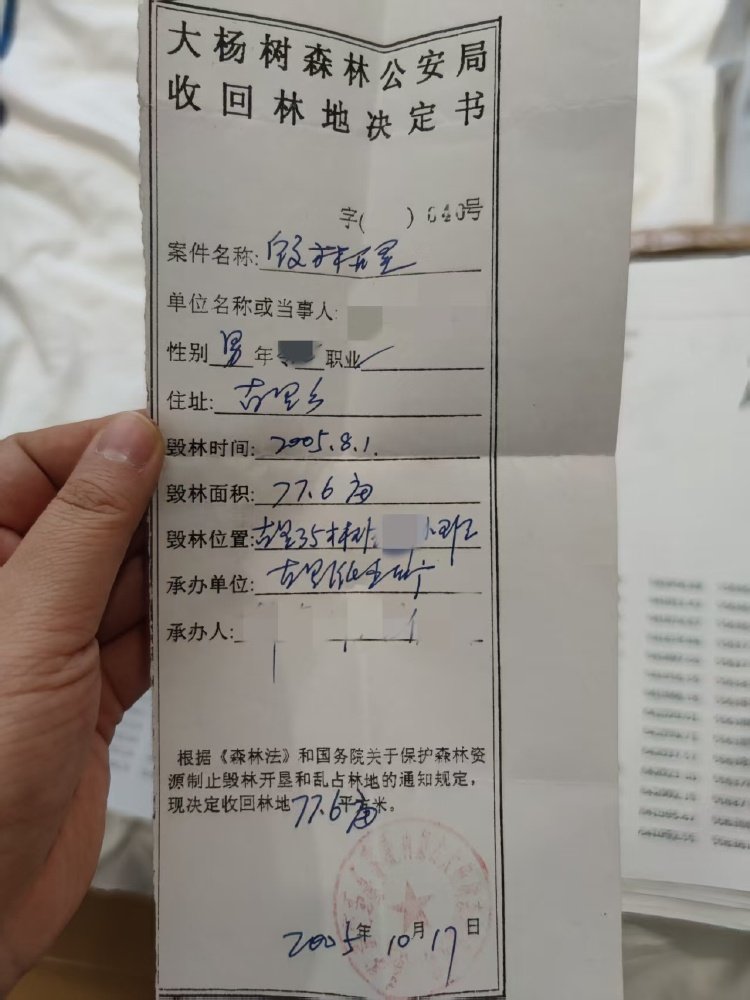 大杨树森林公安局
收回林地决定书
字( ) 040号
案件名称: 毁林开垦
单位名称或当事人:
性别 男 年 职业
住址: 古里乡
毁林时间: 2005.8.1.
毁林面积: 77.6亩
毁林位置: 古里35林班 小班
承办单位: 古里
承办人:
根据《森林法》和国务院关于保护森林资
源制止毁林开垦和乱占林地的通知规定，
现决定收回林地77.6亩平方米。
2005年10月17日